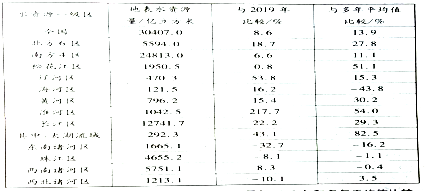 水资源一级区 地表水资源量/亿立方米 与2019年比较/% 与多年平均值比较/%
全国 30407.0 8.6 13.9
北方6区 5594.0 18.7 27.8
南方4区 24813.0 6.6 11.1
松花江区 1950.5 0.8 51.1
辽河区 470.3 53.8 15.3
海河区 121.5 16.2 -43.8
黄河区 796.2 15.4 30.2
淮河区 1042.5 217.7 54.0
长江区 12741.7 22.2 29.3
其中:太湖流域 292.3 43.1 82.5
东南诸河区 1665.1 -32.7 -16.2
珠江区 4655.2 -8.1 -1.1
西南诸河区 5751.1 8.3 -0.4
西北诸河区 1213.1 -10.1 3.5